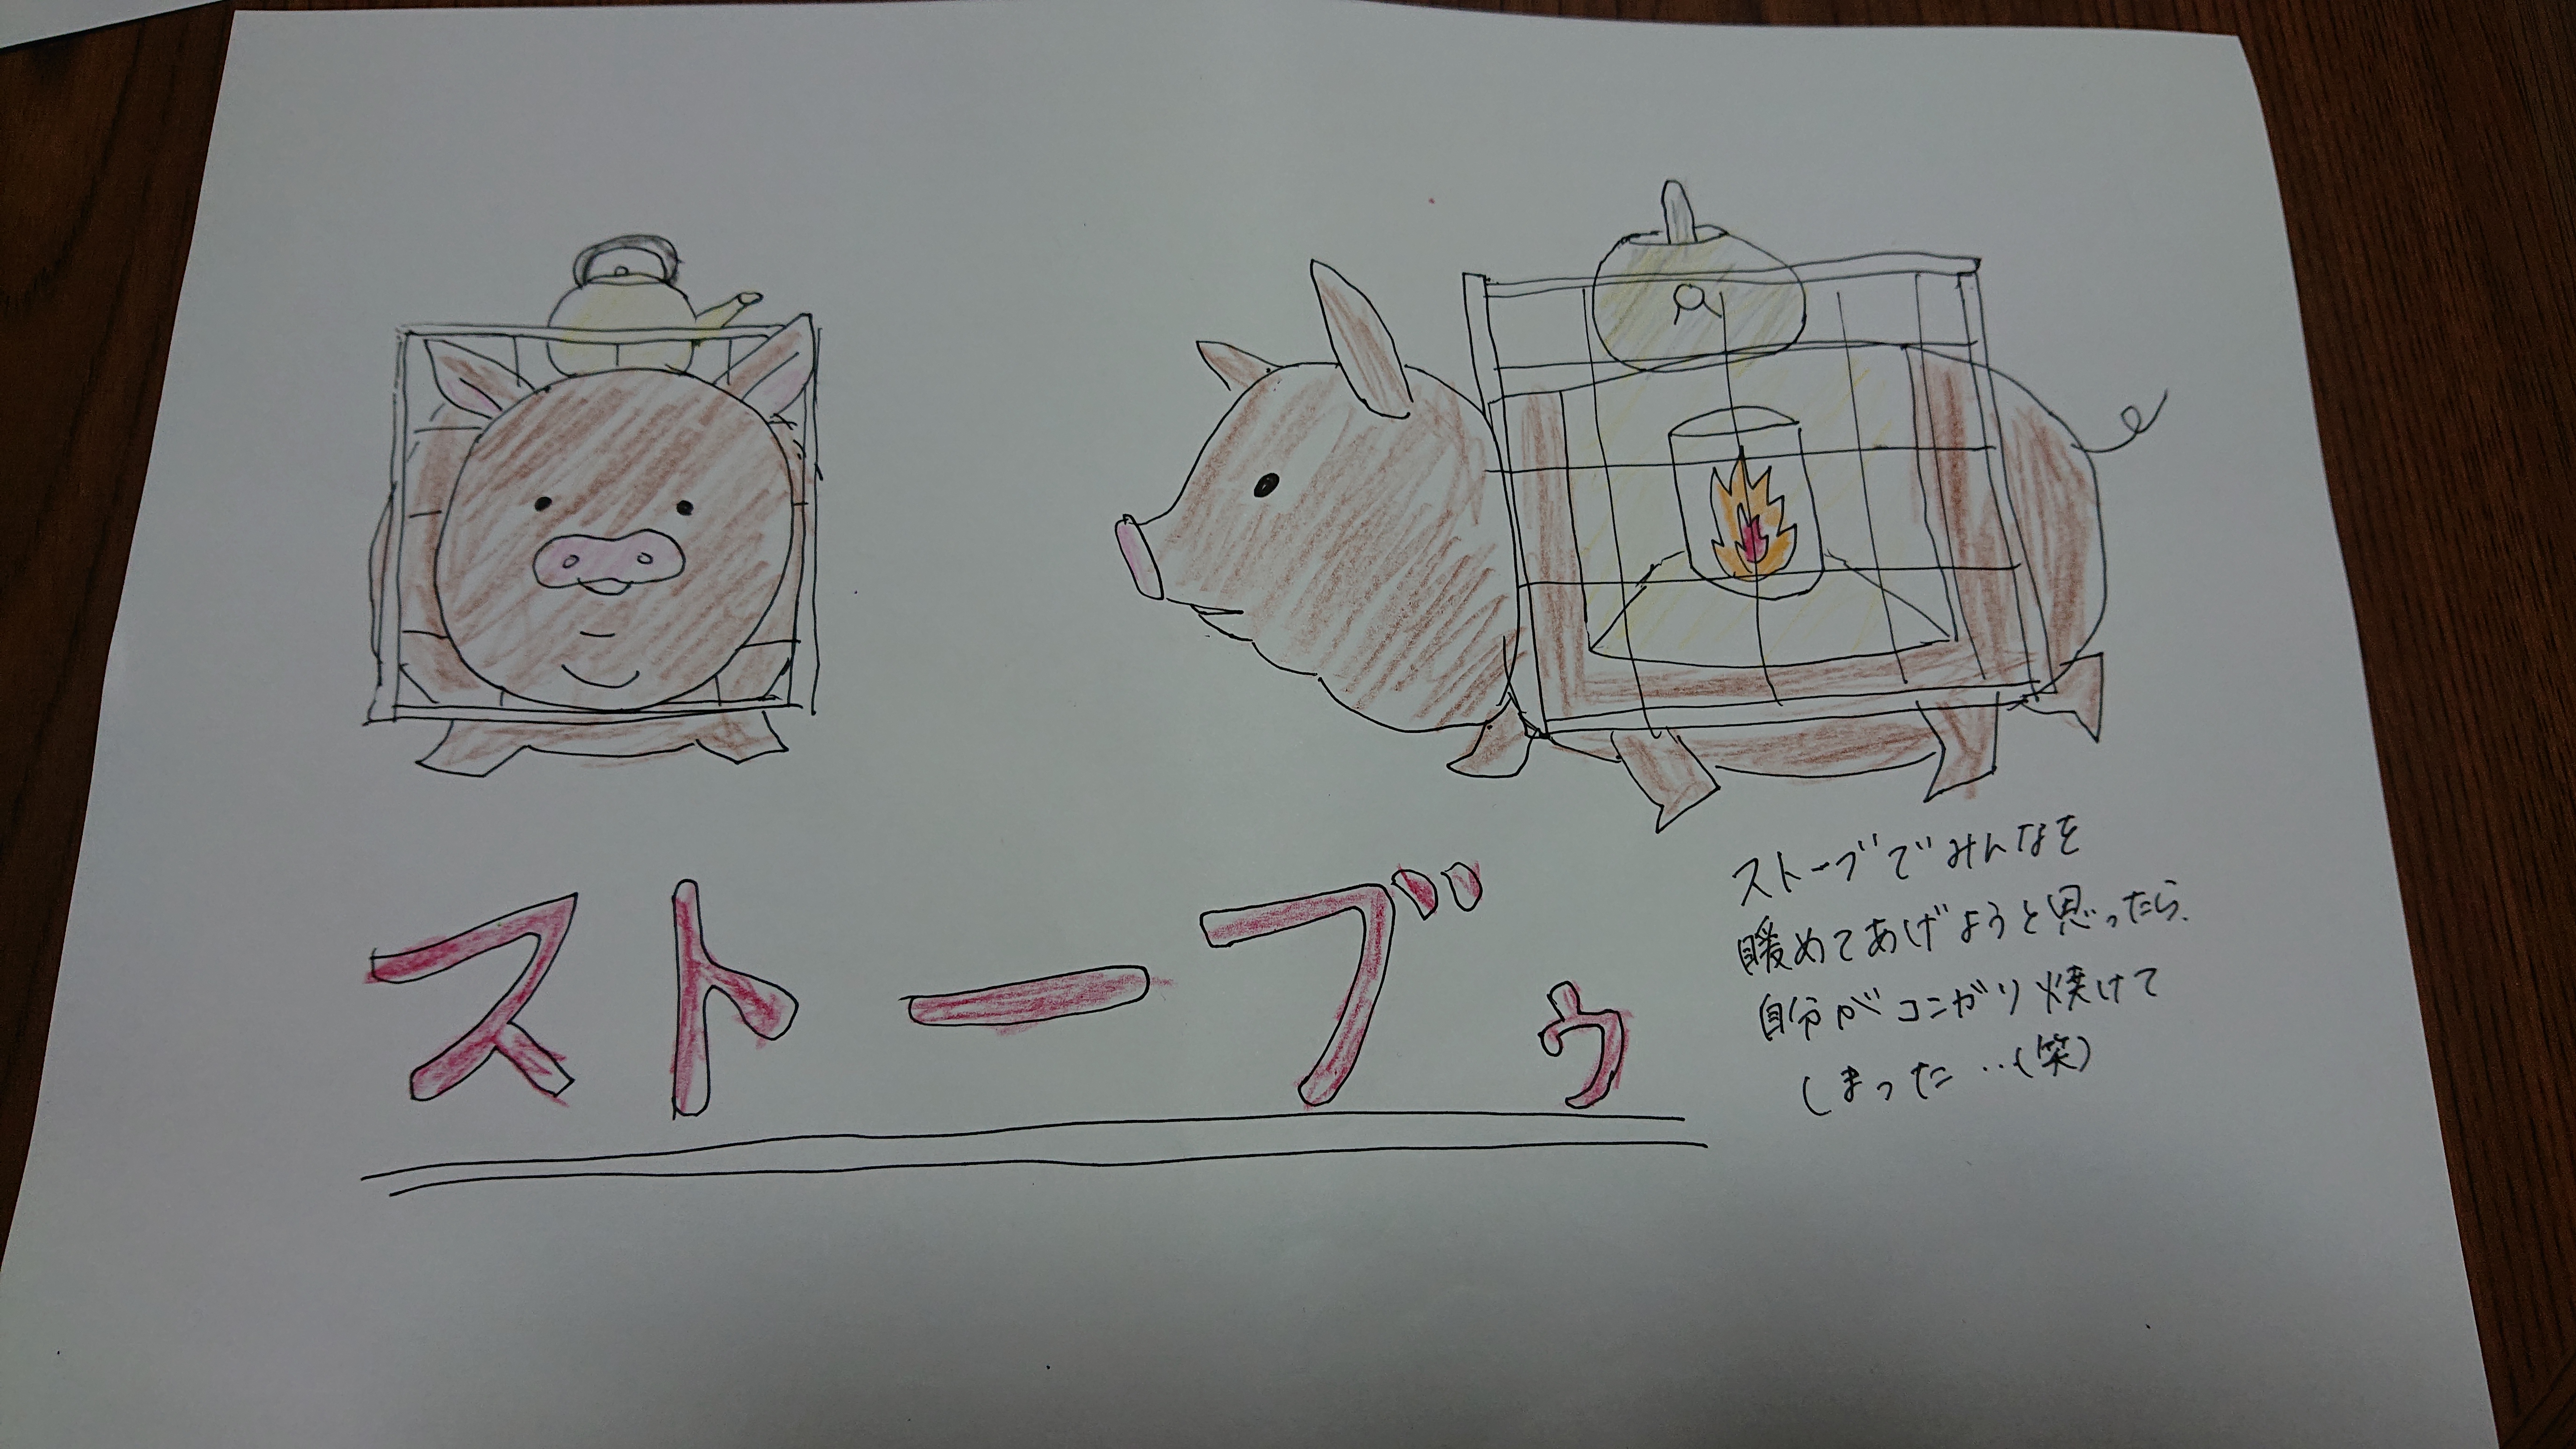 ストーブゥ
ストーブでみんなを
暖めてあげようと思ったら、
自分がコンガリ焼けて
しまった…(笑)